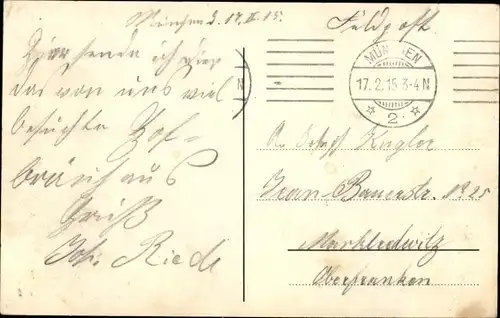 München d. 17. II. 15.
Feldpost
Hier sende ich dir
das von uns viel
besuchte Hof-
bräuhaus
Gruß
Joh. Riedl
MÜNCHEN
17.2.15 3-4 N
2
N
An Josef Kugler
Jean Paul str. No 25
Marktredwitz
Oberfranken